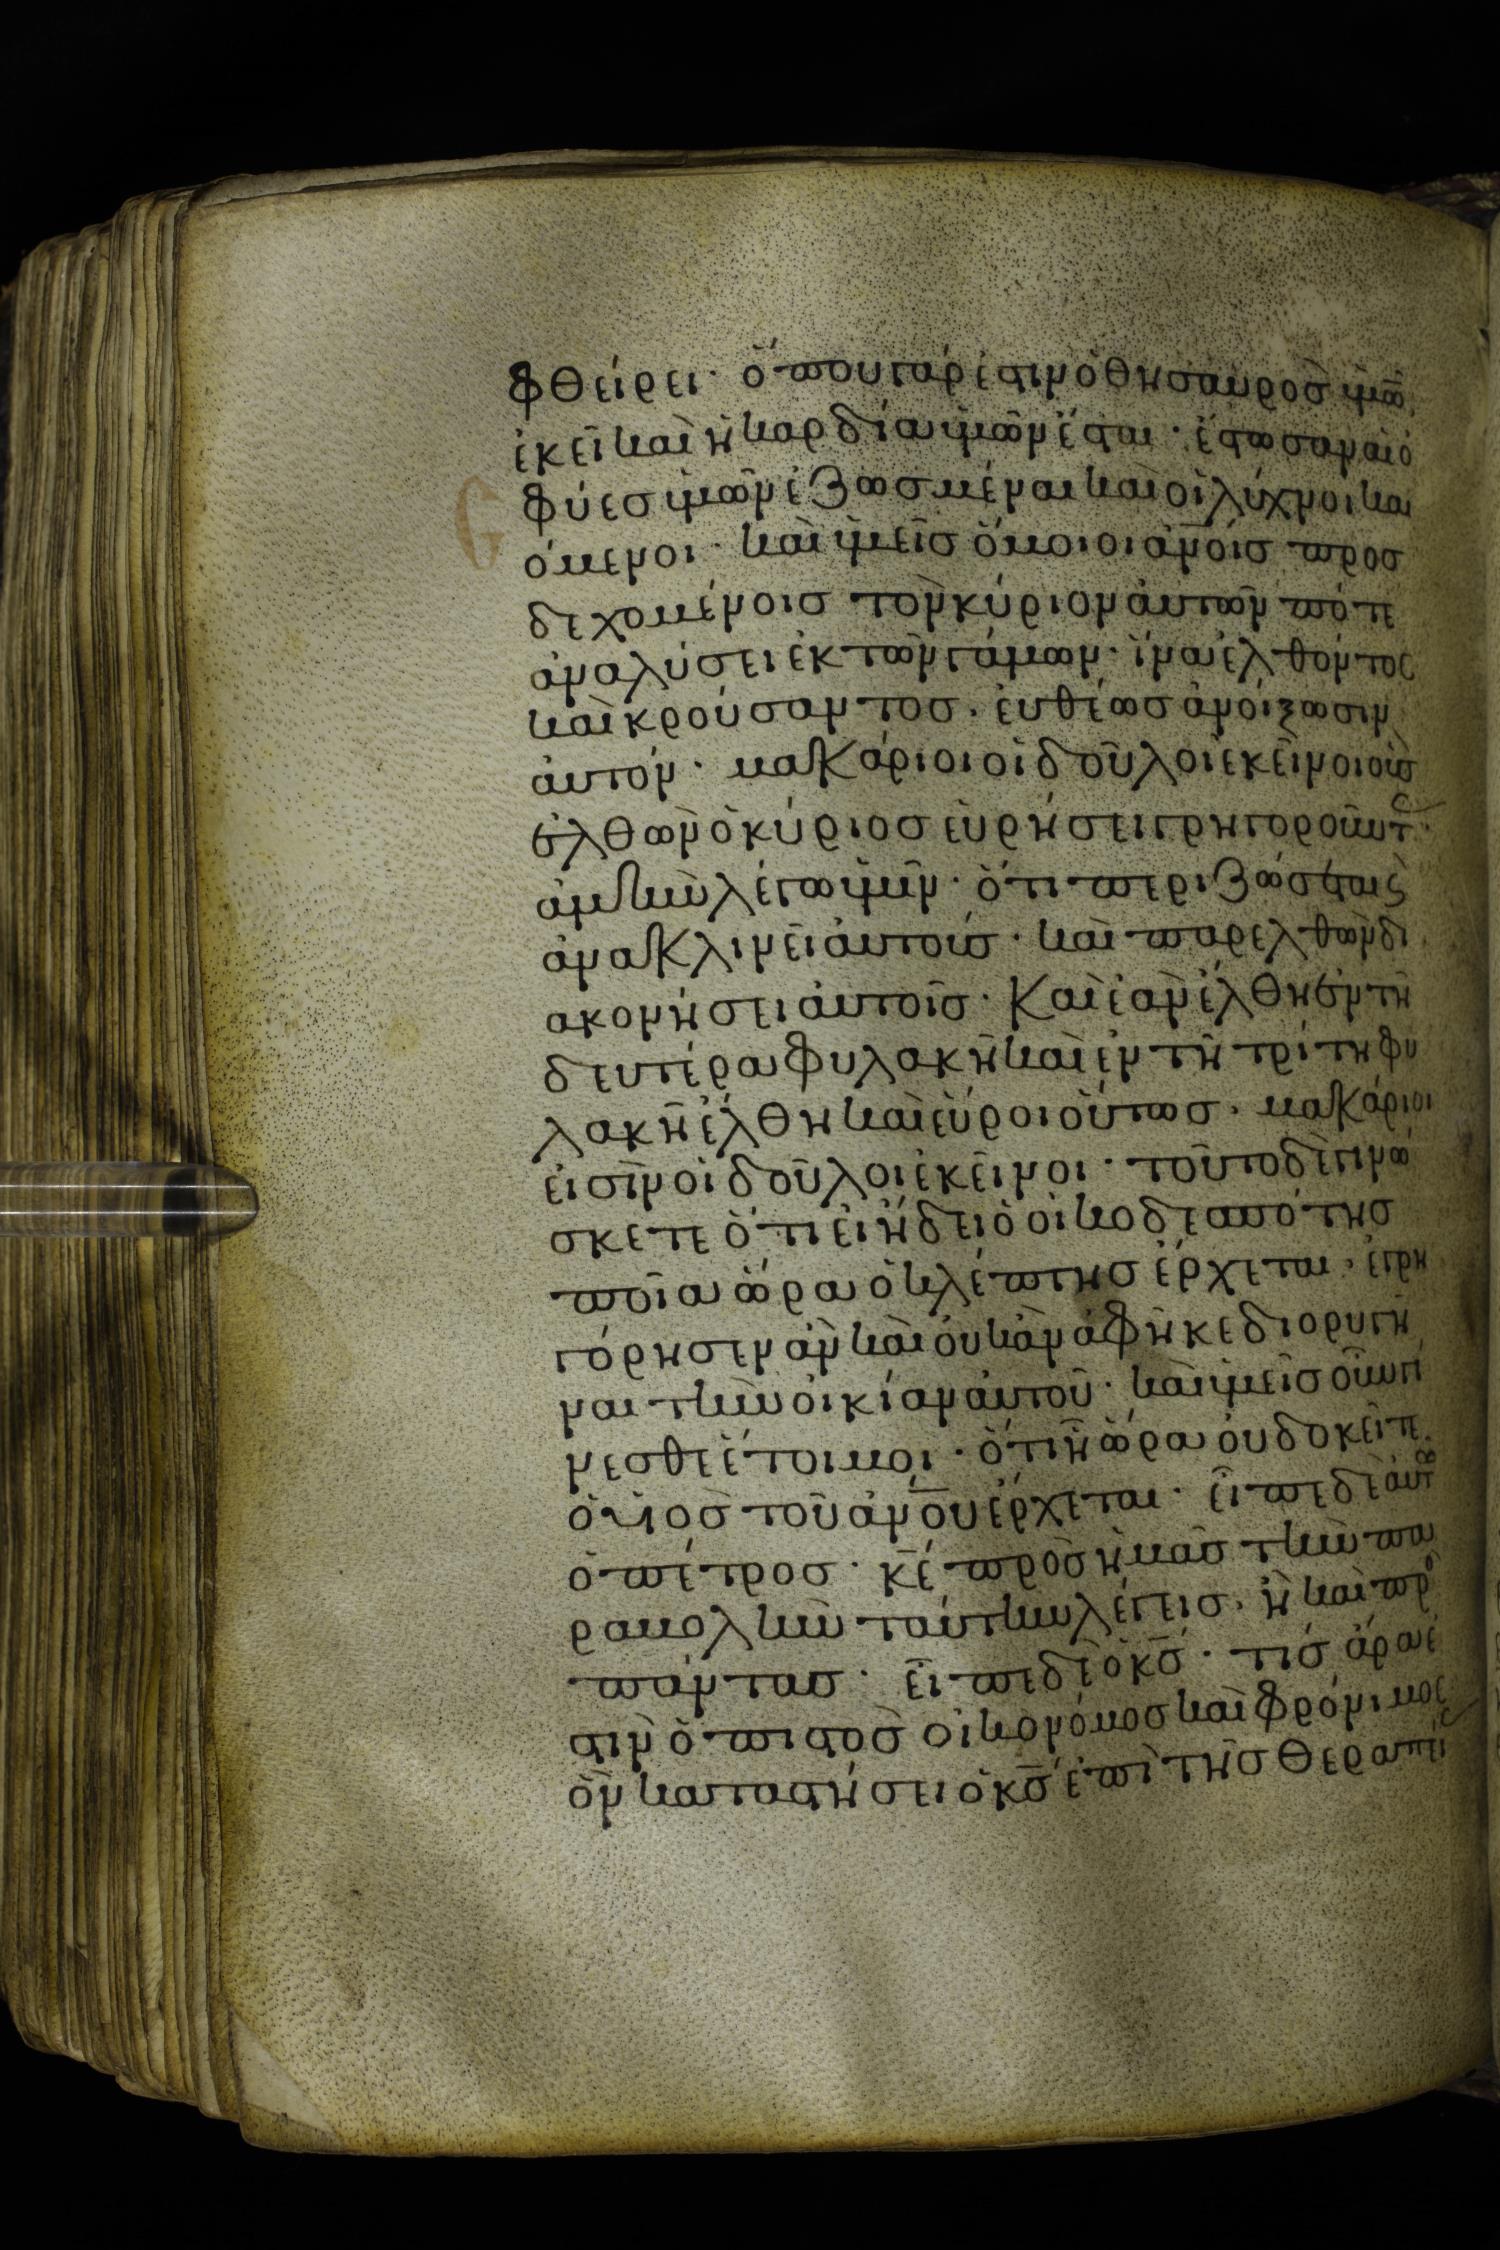 φθείρει· ὅπου γάρ ἐστιν ὁ θησαυρὸς ὑμῶ
ἐκεῖ καὶ ἡ καρδία ὑμῶν ἔσται· ἔστωσαν αἱ ὀ
φύες ὑμῶν ἐζωσμέναι καὶ οἱ λύχνοι και
όμενοι· καὶ ὑμεῖς ὅμοιοι ἀνοις προσ
δεχομένοις τὸν κύριον ἀυτῶν πότε
ἀναλύσει ἐκ τῶν γάμων· ἵνα ἐλθόντος
καὶ κρούσαντος· ἐυθέως ἀνοίξωσιν
ἀυτόν· μακάριοι οἱ δοῦλοι ἐκεῖνοι οὓς
ἐλθὼν ὁ κύριος ἑυρήσει γρηγοροῦντ·
ἀμὴν λέγω ὑμῖν· ὅτι περιζώσεται ϛ
ἀνακλινεῖ ἀυτούς· καὶ παρελθὼν δι
ακονήσει ἀυτοῖς· Καὶ ἐὰν ἔλθη ἐν τῆ
δευτέρα φυλακῆ καὶ ἐν τῆ τρίτη φυ
λακῆ ἔλθη καὶ εὕροι οὕτως· μακάριοι
εἰσὶν οἱ δοῦλοι ἐκεῖνοι· τοῦτο δὲ γινώ
σκετε ὅτι εἰ ἤδει ὁ οἰκοδεσπότης
ποία ὥρα ὁ κλέπτης ἔρχεται· ἐγρη
γόρησεν ἂν καὶ οὐκ ἂν ἀφῆκε διορυγῆ
ναι τὴν οἰκίαν ἀυτοῦ· καὶ ὑμεῖς οὖν γί
νεσθε ἕτοιμοι· ὅτι ἧ ὥρα οὐ δοκεῖτε
ὁ υἱὸς τοῦ ἀνου ἔρχεται· εἶπε δὲ ἀυτῶ
ὁ πέτρος· κε πρὸς ἡμᾶς τὴν πα
ραβολὴν ταύτην λέγεις· ἢ καὶ πρὸ
πάντας· εἶπε δὲ ὁ κς· τίς ἄρα ἐ
στὶν ὁ πιστὸς οἰκονόμος καὶ φρόνιμος
ὃν καταστήσει ὁ κς ἐπὶ τῆς θεραπεί